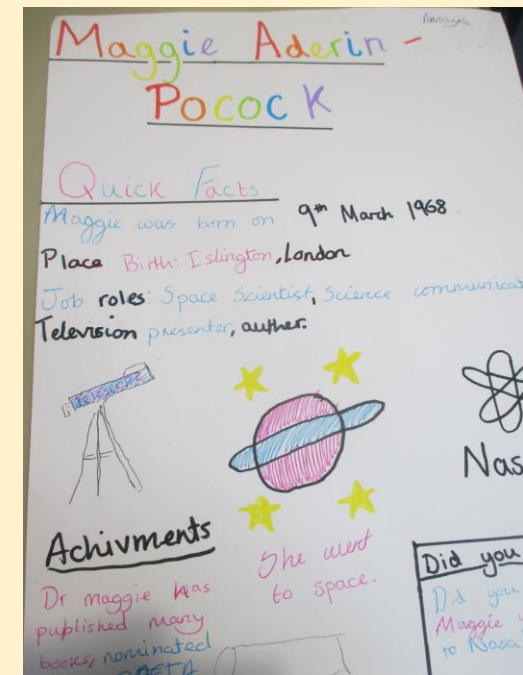 Maggie Aderin -
Pocock
Quick Facts
Maggie was born on 9th March 1968
Place Birth: Islington, London
Job roles: Space Scientist, Science communicat
Television presenter, auther.
telescope
Nas
Achivments
She went
to space.
Dr maggie has
published many
books, nominated
BAFTA
Did you
Did you
Maggie
to Nasa